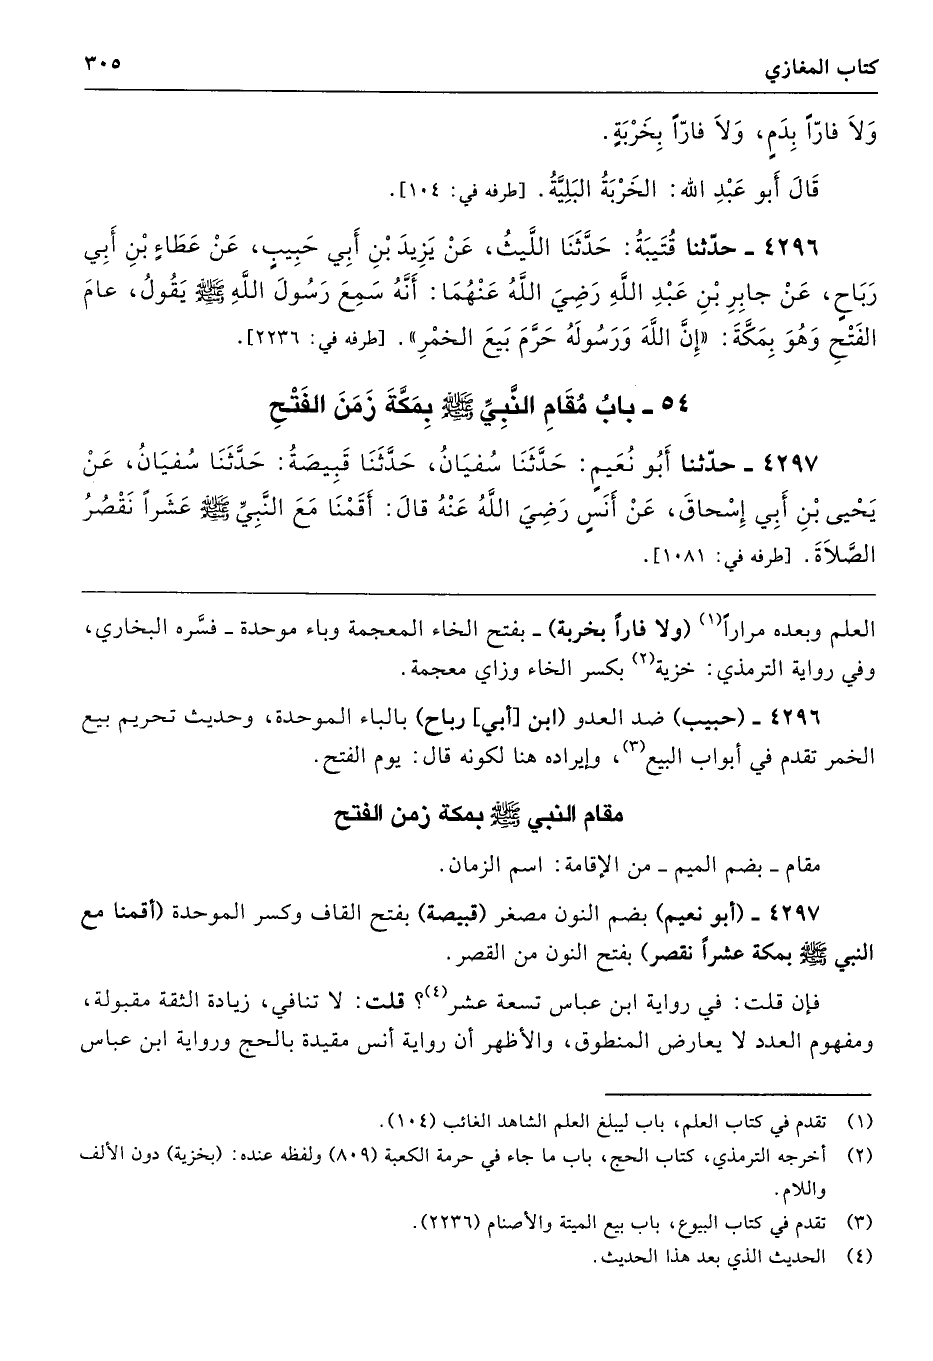 كتاب المغازي ٣٠٥
وَلاَ فارّاً بِدَمٍ، وَلاَ فارّاً بِخَرْبَةٍ.
قَالَ أَبو عَبْدِ الله: الخَرْبَةُ البَلِيَّةُ. [طرفه في: ١٠٤].
٤٢٩٦ ـ حدّثنا قُتَيبَةُ: حَدَّثَنَا اللَّيثُ، عَنْ يَزِيدَ بْنِ أَبي حَبِيبٍ، عَنْ عَطَاءٍ بْنِ أَبي
رَبَاحٍ، عَنْ جابِرِ بْنِ عَبْدِ اللَّهِ رَضِيَ اللَّهُ عَنْهُمَا: أَنَّهُ سَمِعَ رَسُولَ اللَّهِ ﷺ يَقُولُ، عامَ
الفَتْحِ وَهُوَ بِمَكَّةَ: «إِنَّ اللَّهَ وَرَسُولَهُ حَرَّمَ بَيعَ الخمْرِ». [طرفه في: ٢٢٣٦].
٥٤ ـ بابُ مُقَامِ النَّبِيِّ ﷺ بِمَكَّةَ زَمَنَ الفَتْحِ
٤٢٩٧ ـ حدّثنا أَبُو نُعَيمٍ: حَدَّثَنَا سُفيَانُ، حَدَّثَنَا قَبِيصَةُ: حَدَّثَنَا سُفيَانُ، عَنْ
يَحْيى بْنِ أَبي إِسْحاقَ، عَنْ أَنَسٍ رَضِيَ اللَّهُ عَنْهُ قالَ: أَقَمْنَا مَعَ النَّبِيِّ ﷺ عَشَراً نَقْصُرُ
الصَّلاَةَ. [طرفه في: ١٠٨١].
العلم وبعده مراراً(١) (ولا فاراً بخربة) ـ بفتح الخاء المعجمة وباء موحدة ـ فسَّره البخاري،
وفي رواية الترمذي: خزية(٢) بكسر الخاء وزاي معجمة.
٤٢٩٦ ـ (حبيب) ضد العدو (ابن [أبي] رباح) بالباء الموحدة، وحديث تحريم بيع
الخمر تقدم في أبواب البيع(٣)، وإيراده هنا لكونه قال: يوم الفتح.
مقام النبي ﷺ بمكة زمن الفتح
مقام ـ بضم الميم ـ من الإقامة: اسم الزمان.
٤٢٩٧ ـ (أبو نعيم) بضم النون مصغر (قبيصة) بفتح القاف وكسر الموحدة (أقمنا مع
النبي ﷺ بمكة عشراً نقصر) بفتح النون من القصر.
فإن قلت: في رواية ابن عباس تسعة عشر(٤)؟ قلت: لا تنافي، زيادة الثقة مقبولة،
ومفهوم العدد لا يعارض المنطوق، والأظهر أن رواية أنس مقيدة بالحج ورواية ابن عباس
(١) تقدم في كتاب العلم، باب ليبلغ العلم الشاهد الغائب (١٠٤).
(٢) أخرجه الترمذي، كتاب الحج، باب ما جاء في حرمة الكعبة (٨٠٩) ولفظه عنده: (بخزية) دون الألف
واللام.
(٣) تقدم في كتاب البيوع، باب بيع الميتة والأصنام (٢٢٣٦).
(٤) الحديث الذي بعد هذا الحديث.